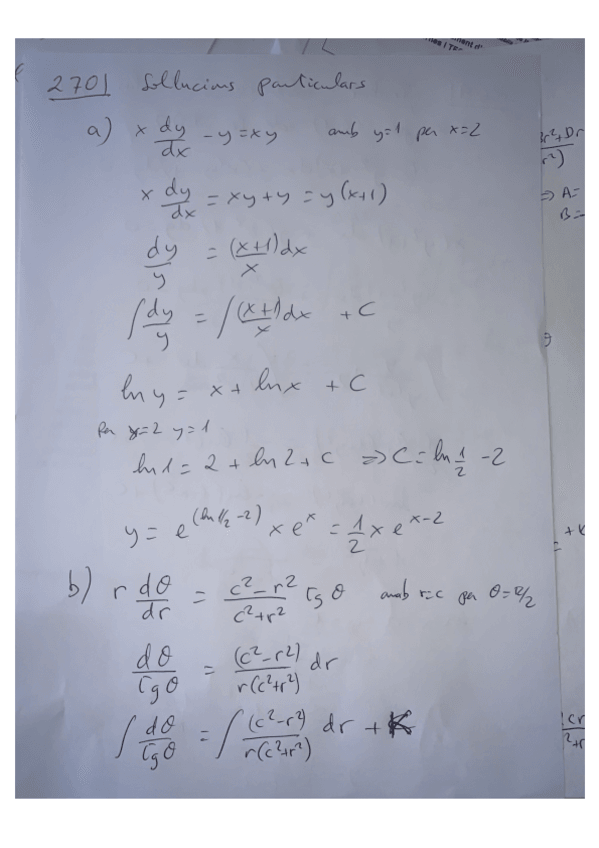 2701 Sollucions particulars
a) x dy/dx - y = xy amb y=1 per x=2
x dy/dx = xy + y = y(x+1)
dy/y = (x+1)/x dx
∫ dy/y = ∫ (x+1)/x dx + C
ln y = x + ln x + C
Per x=2 y=1
ln 1 = 2 + ln 2 + C ⇒ C = ln 1/2 - 2
y = e^(ln 1/2 - 2) x e^x = 1/2 x e^(x-2)
b) r dθ/dr = (c²-r²)/(c²+r²) Tg θ amb r=c per θ=π/2
dθ/Tg θ = (c²-r²)/(r(c²+r²)) dr
∫ dθ/Tg θ = ∫ (c²-r²)/(r(c²+r²)) dr + K